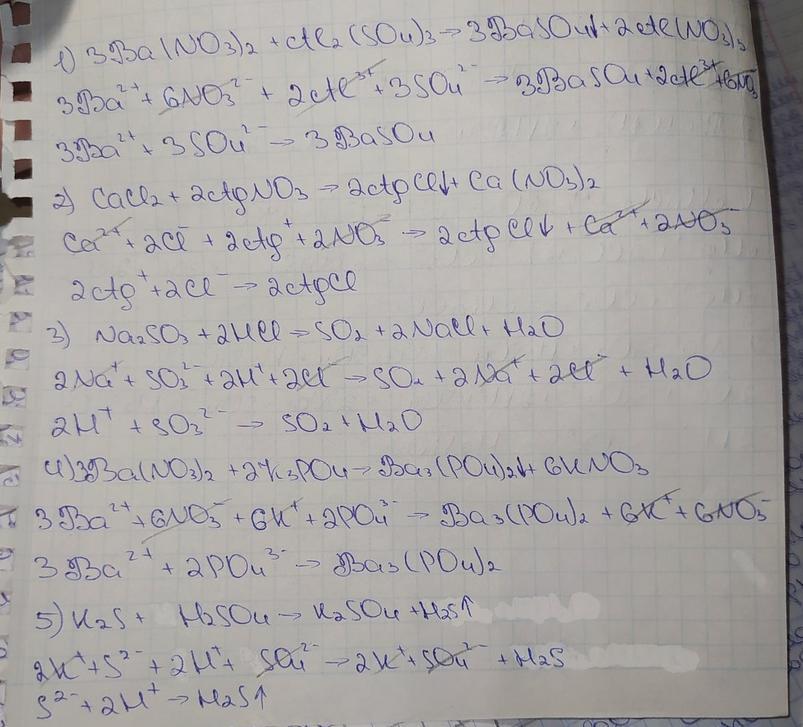 1) 3Ba(NO₃)₂ + Al₂(SO₄)₃ → 3BaSO₄↓ + 2Al(NO₃)₃
3Ba²⁺ + 6NO₃²⁻ + 2Al³⁺ + 3SO₄²⁻ → 3BaSO₄ + 2Al³⁺ + 6NO₃
3Ba²⁺ + 3SO₄²⁻ → 3BaSO₄
2) CaCl₂ + 2AgNO₃ → 2AgCl↓ + Ca(NO₃)₂
Ca²⁺ + 2Cl⁻ + 2Ag⁺ + 2NO₃⁻ → 2AgCl↓ + Ca²⁺ + 2NO₃⁻
2Ag⁺ + 2Cl⁻ → 2AgCl
3) Na₂SO₃ + 2HCl → SO₂ + 2NaCl + H₂O
2Na⁺ + SO₃²⁻ + 2H⁺ + 2Cl⁻ → SO₂ + 2Na⁺ + 2Cl⁻ + H₂O
2H⁺ + SO₃²⁻ → SO₂ + H₂O
4) 3Ba(NO₃)₂ + 2K₃PO₄ → Ba₃(PO₄)₂↓ + 6KNO₃
3Ba²⁺ + 6NO₃⁻ + 6K⁺ + 2PO₄³⁻ → Ba₃(PO₄)₂ + 6K⁺ + 6NO₃⁻
3Ba²⁺ + 2PO₄³⁻ → Ba₃(PO₄)₂
5) K₂S + H₂SO₄ → K₂SO₄ + H₂S↑
2K⁺ + S²⁻ + 2H⁺ + SO₄²⁻ → 2K⁺ + SO₄²⁻ + H₂S
S²⁻ + 2H⁺ → H₂S↑